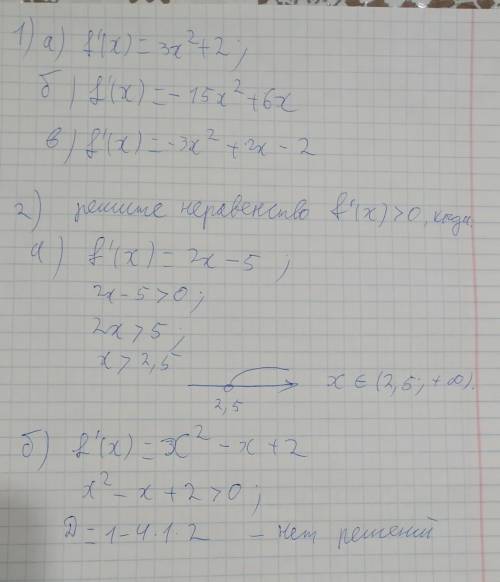 1) а) f'(x) = 3x² + 2 ;
б) f'(x) = -15x² + 6x
в) f'(x) = -3x² + 2x - 2
2) решите неравенство f'(x) > 0, когда
а) f'(x) = 2x - 5 ;
2x - 5 > 0 ;
2x > 5 ;
x > 2,5
2,5
x ∈ (2,5; +∞).
б) f'(x) = x² - x + 2
x² - x + 2 > 0 ;
D = 1 - 4·1·2 - нет решений